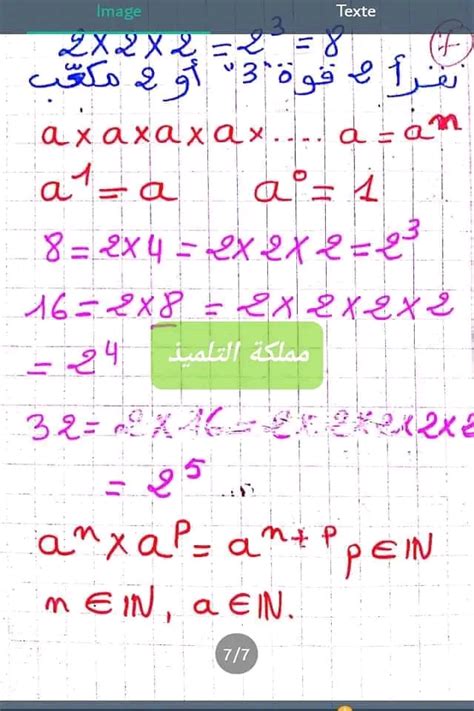 Image Texte
2×2×2 = 2³ = 8 7
نقرأ 2 قوة "3" أو 2 مكعّب
a × a × a × a × .... a = aⁿ
a¹ = a a⁰ = 1
8 = 2×4 = 2×2×2 = 2³
16 = 2×8 = 2×2×2×2
= 2⁴
مملكة التلميذ
32 = 2×16 = 2×2×2×2×2
= 2⁵ ...
aⁿ × aᵖ = aⁿ⁺ᵖ p∈IN
n ∈ IN, a ∈ IN.
7/7